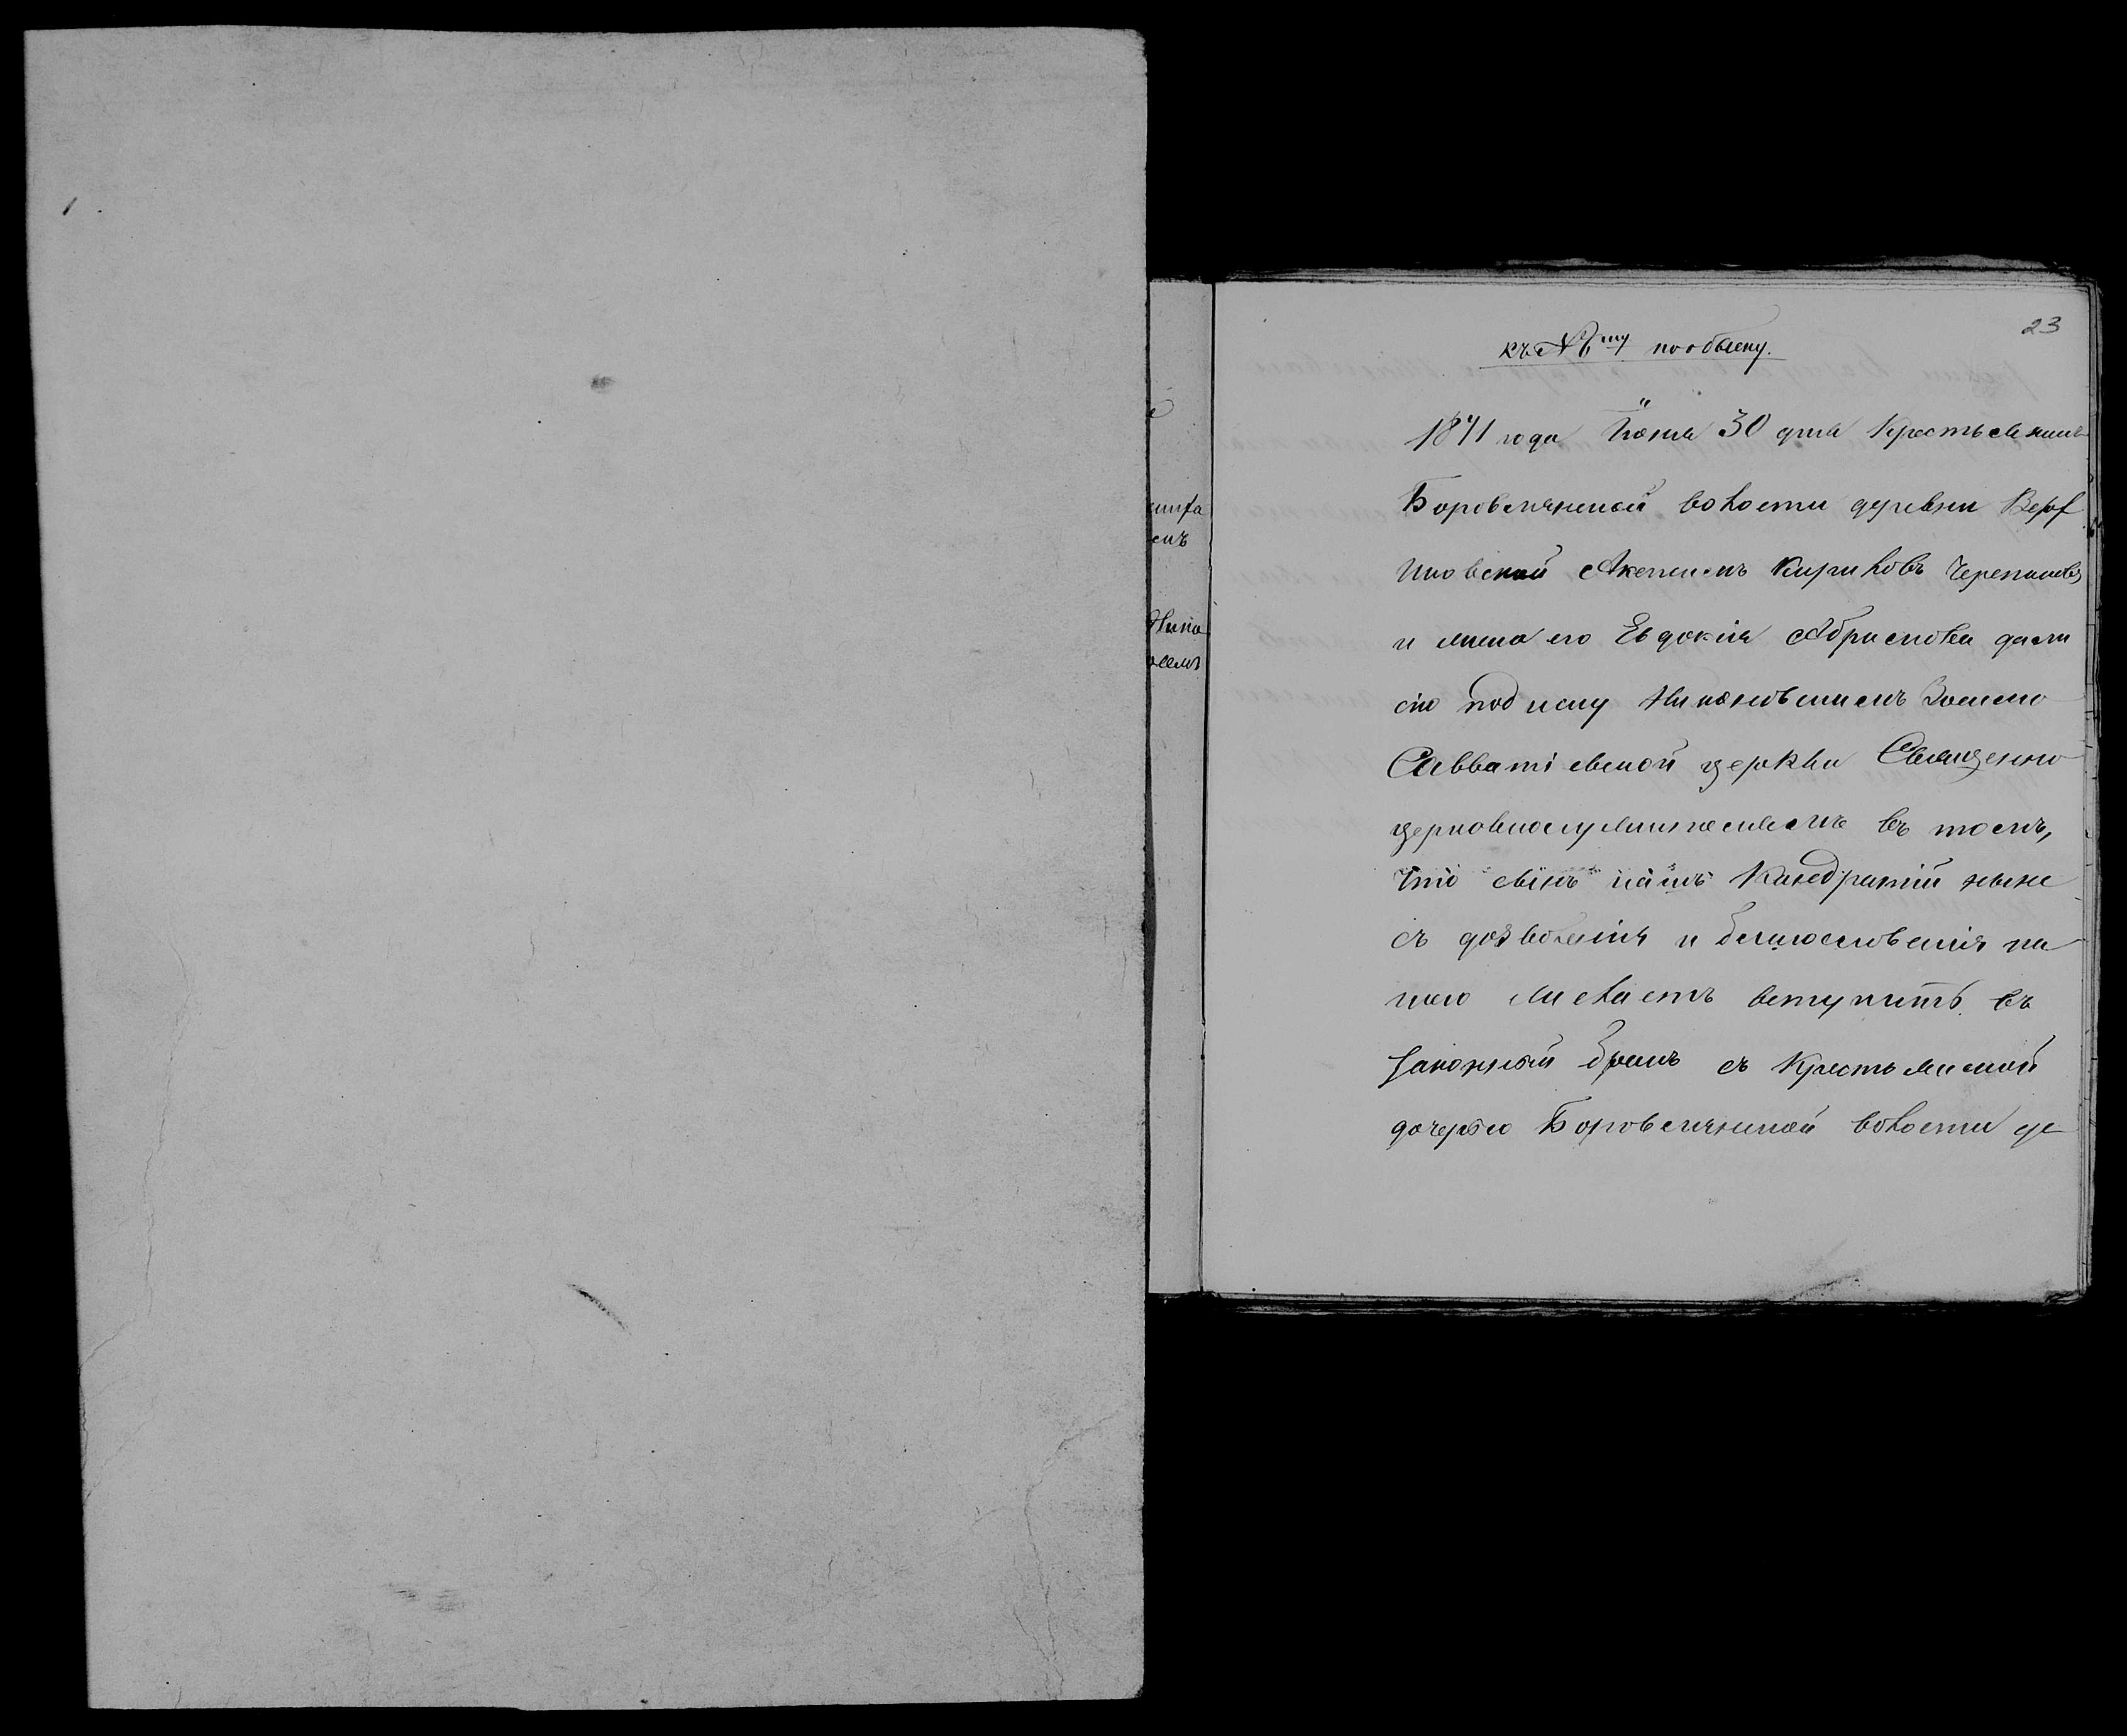 23
къ № 6му по обыску.
1871 года Июня 30 дня Крестьянинъ
Боровлянской волости деревни Верх
Иковской Акепсимъ Кириловъ Черепановъ
и жена его Евдокія Абрамова дали
сію подписку Зосимо
Савватіевской церкви Священно
церковнослужителямъ въ томъ,
что сынъ нашъ Кандратій ныне
съ дозволенія и благословенія на
шего желаетъ вступить въ
законный бракъ съ Крестьянской
дочерью Боровлянской волости де